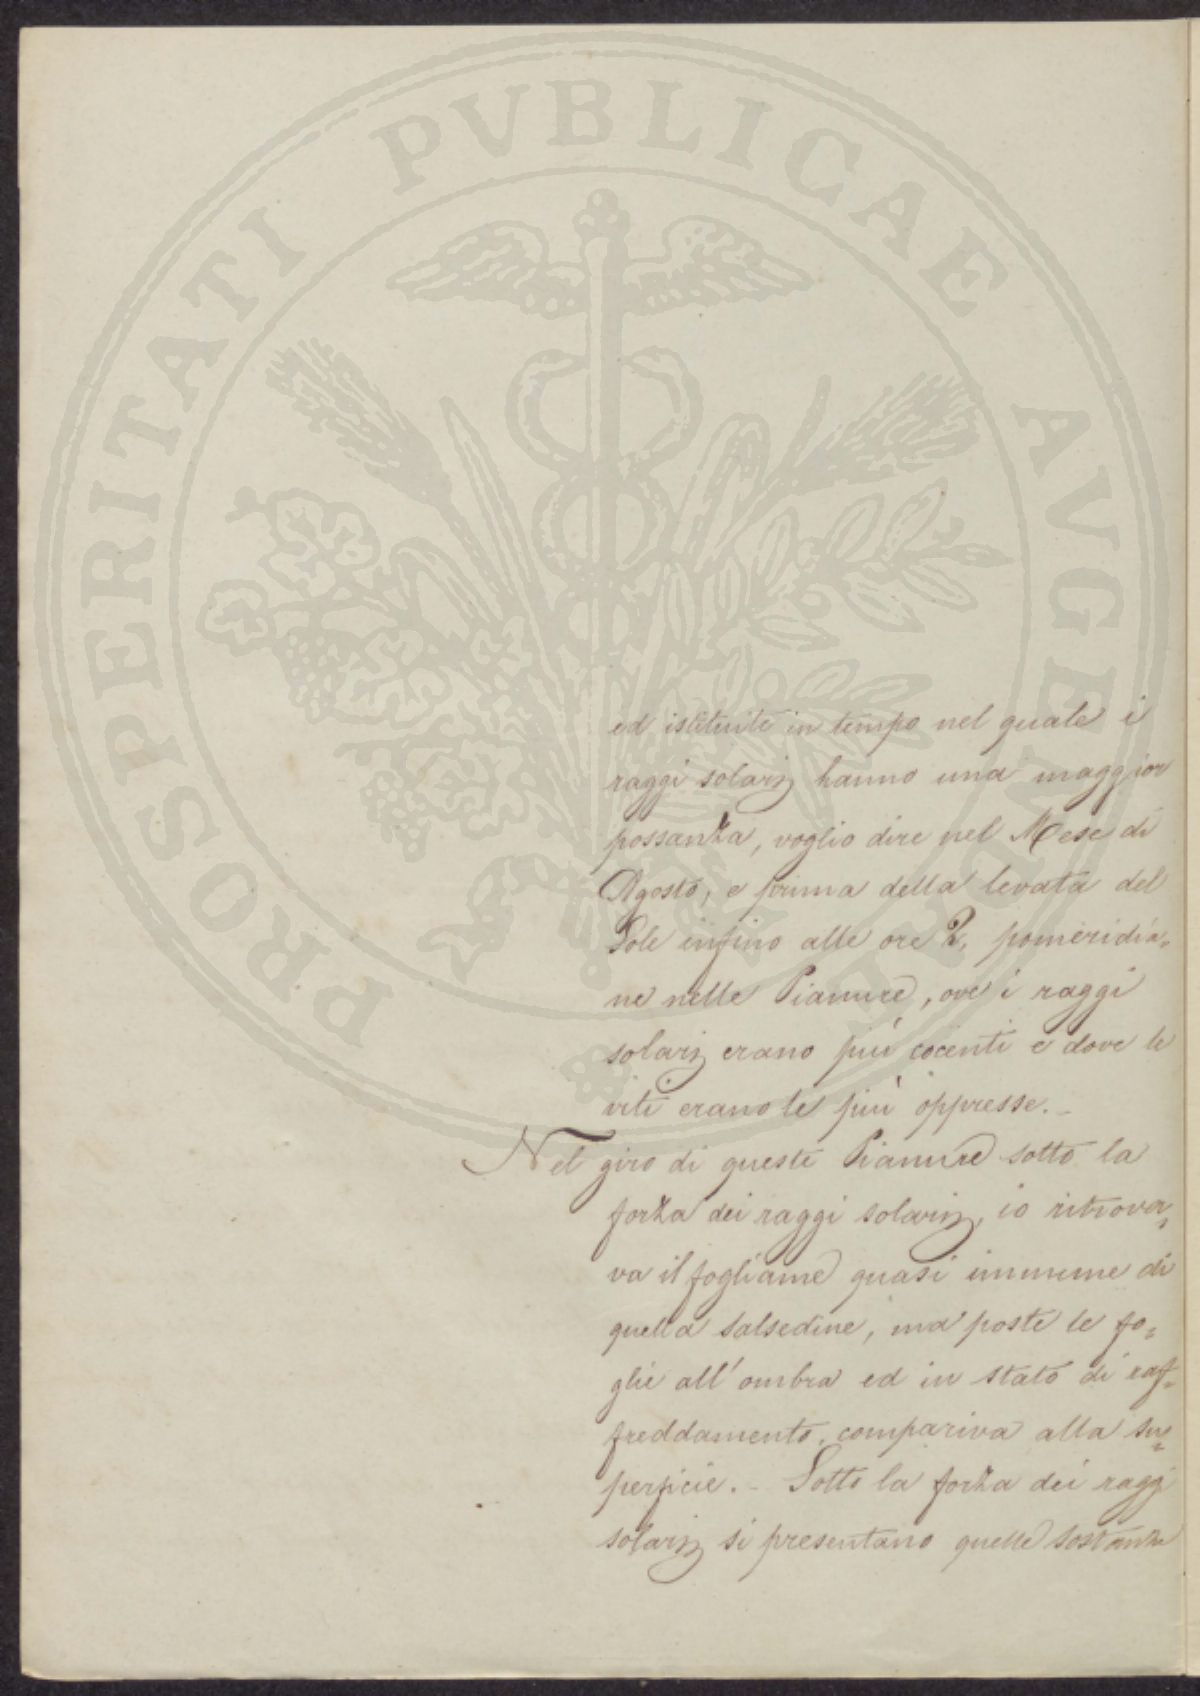 PROSPERITATI PVBLICAE AVGENDAE
ed istituite in tempo nel quale i
raggi solarj hanno una maggior
possanza, voglio dire nel Mese di
Agosto, e prima della levata del
Sole infino alle ore 2, pomeridia=
ne nelle Pianure, ove i raggi
solarj erano più cocenti e dove le
viti erano le più oppresse. -
Nel giro di queste Pianure sotto la
forza dei raggi solarj, io ritrova=
va il fogliame quasi immune di
quella salsedine, ma poste le fo=
glie all'ombra ed in stato di raf=
freddamento, compariva alla su=
perficie. - Sotto la forza dei raggi
solarj si presentano quelle sostanze